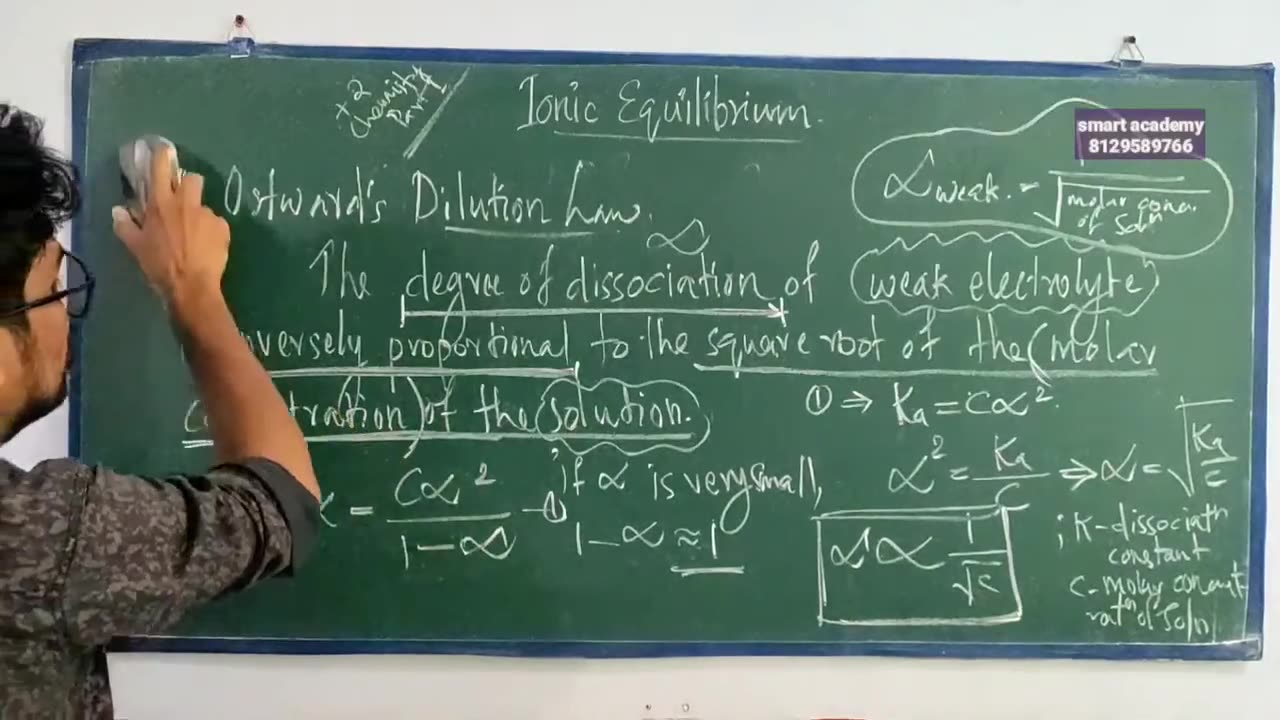 +2
Chemistry
Part 1
Ionic Equilibrium.
smart academy
8129589766
Ostward's Dilution Law.
α weak. = 1/√molar conc. of Soln
α
The degree of dissociation of (weak electrolyte)
versely proportional to the square root of the (molar
tration) of the (solution.)
① ⇒ Ka = Cα².
= Cα²/1-α -① ; if α is very small,
1-α ≈ 1
α² = Ka/C ⇒ α = √Ka/c
α ∝ 1/√c
; K-dissociatn
constant
C-molar concent-
ratn of Soln